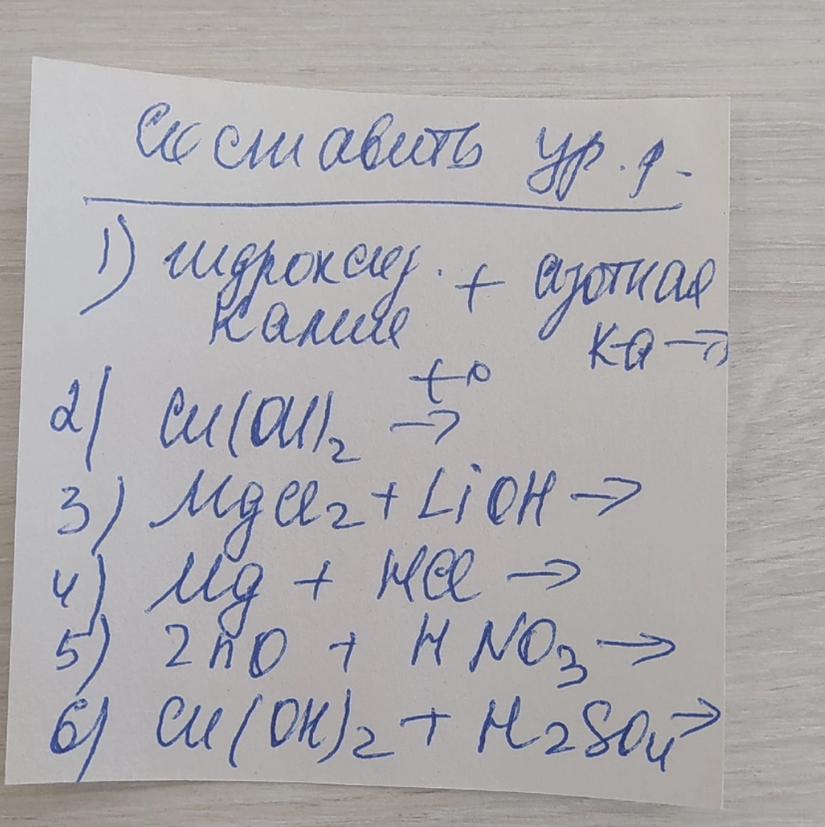 Составить ур. р.
1) гидроксид + азотная
калия к-а →
t°
2) Cu(OH)₂ →
3) MgCl₂ + LiOH →
4) Mg + HCl →
5) ZnO + HNO₃ →
6) Cu(OH)₂ + H₂SO₄ →